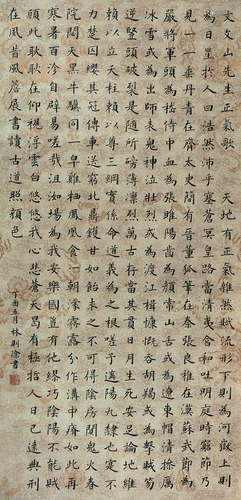 文文山先生正氣歌 天地有正氣雜然賦流形下則為河嶽上則
為日星於人曰浩然沛乎塞蒼冥皇路當清夷含和吐明庭時窮節乃
見一一垂丹青在齊太史簡在晉董狐筆在秦張良椎在漢蘇武節為
嚴將軍頭為嵇侍中血為張睢陽齒為顏常山舌或為遼東帽清操厲
冰雪或為出師表鬼神泣壯烈或為渡江楫慷慨吞胡羯或為擊賊笏
逆豎頭破裂是氣所磅薄凜烈萬古存當其貫日月生死安足論地維
賴以立天柱賴以尊三綱實係命道義為之根嗟予遘陽九隸也實不
力楚囚纓其冠傳車送窮北鼎鑊甘如飴求之不可得陰房闃鬼火春
院閟天黑牛驥同一皁雞棲鳳凰食一朝濛霧露分作溝中瘠如此再
寒暑百沴自辟易嗟哉沮洳場為我安樂國豈有他繆巧陰陽不能賊
顧此耿耿在仰視浮雲白悠悠我心悲蒼天曷有極哲人日已遠典刑
在夙昔風簷展書讀古道照顏色
五月 林則徐書